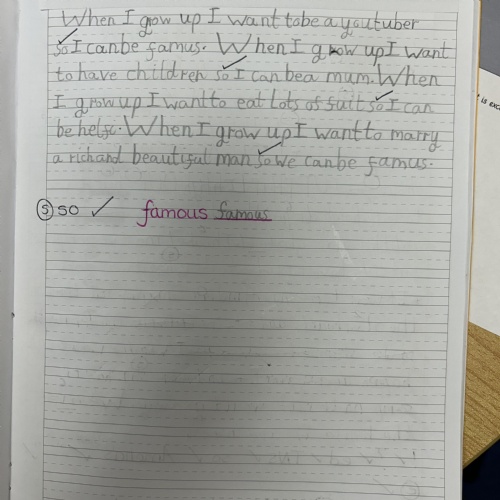 When I grow up I want to be a youtuber
so I can be famus. When I grow up I want
to have children so I can be a mum. When
I grow up I want to eat lots of fuit so I can
be helfy. When I grow up I want to marry
a rich and beautiful man so we can be famus.
S so ✓ famous famous